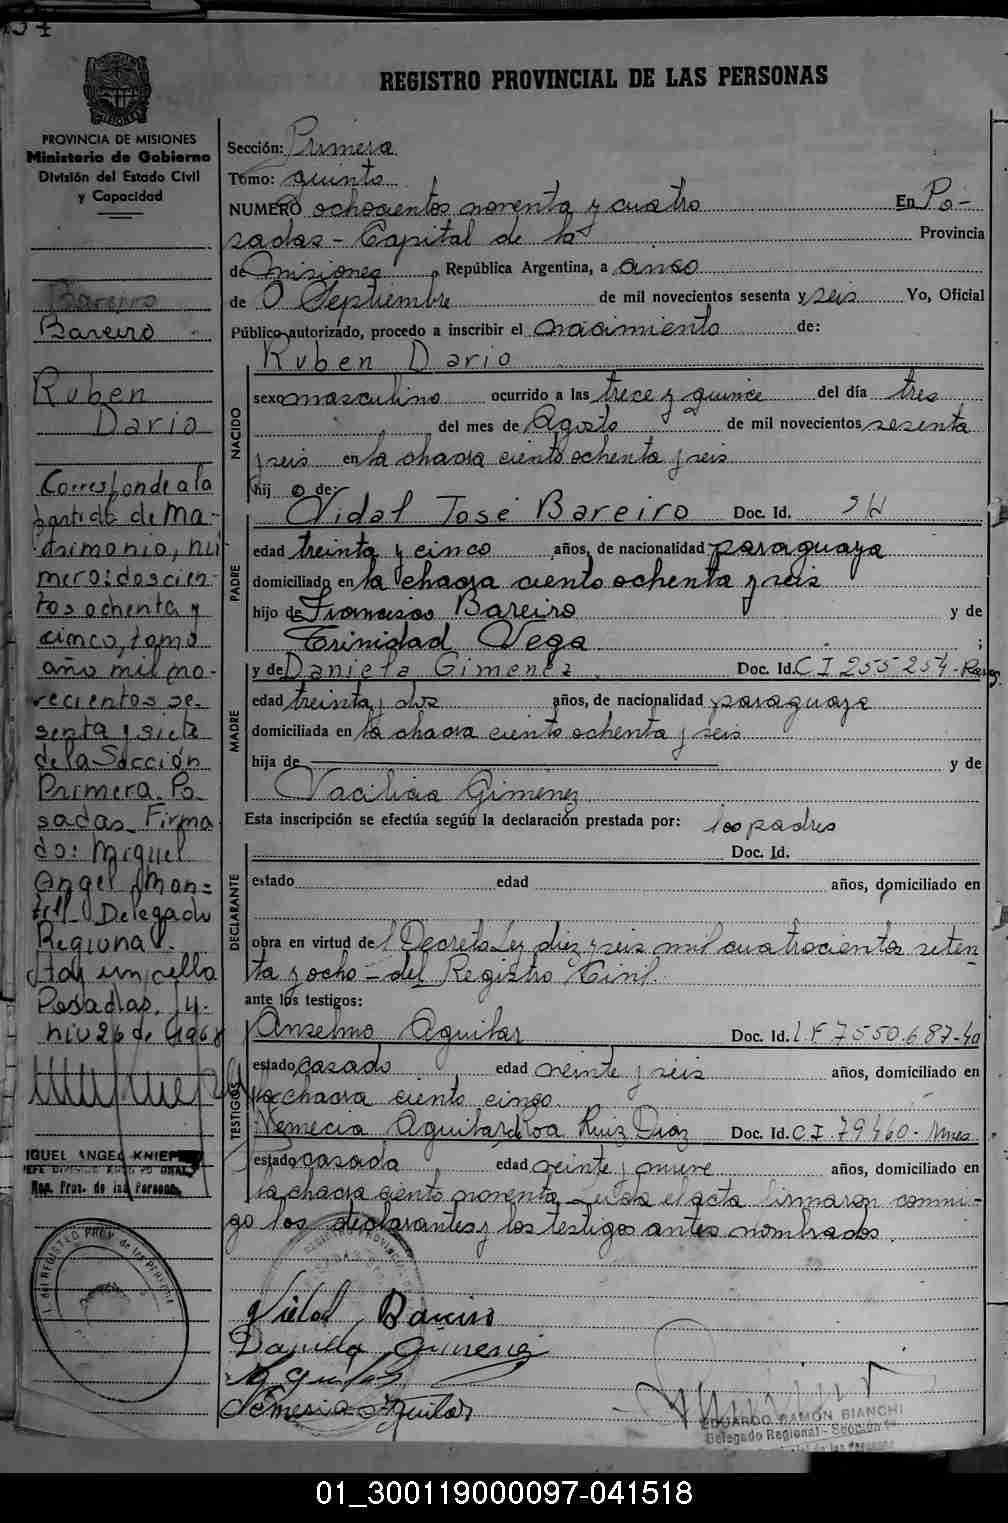 REGISTRO PROVINCIAL DE LAS PERSONAS
PROVINCIA DE MISIONES
Ministerio de Gobierno
División del Estado Civil
y Capacidad
Bareiro
Bareiro
Ruben
Dario
Corresponde a la
partida de Ma-
trimonio, nú
mero: doscien-
tos ochenta y
cinco, tomo
año mil no-
vecientos se-
senta y siete
de la Sección
Primera. Po
sadas. Firma
do: Miguel
Angel Man-
Delegado
Regional.
Hay un sello
Posadas, Ju-
nio 26 de 1968
MIGUEL ANGEL KNIEF
JEFE GRAL.
Reg. Prov. de las Personas
Sección: Primera
Tomo: quinto
NUMERO ochocientos noventa y cuatro En Po-
sadas - Capital de la Provincia
de Misiones, República Argentina, a cinco
de Septiembre de mil novecientos sesenta y seis Yo, Oficial
Público autorizado, procedo a inscribir el nacimiento de:
Ruben Dario
NACIDO
sexo masculino ocurrido a las trece y quince del día tres
del mes de Agosto de mil novecientos sesenta
y seis en la chacra ciento ochenta y seis
hij o de:
Vidal José Bareiro Doc. Id.
PADRE
edad treinta y cinco años, de nacionalidad paraguaya
domiciliado en la chacra ciento ochenta y seis
hijo de Francisco Bareiro y de
Trinidad Vega ;
y de Daniela Gimenez Doc. Id. C I 255-254-
MADRE
edad treinta y dos años, de nacionalidad paraguaya
domiciliada en la chacra ciento ochenta y seis
hija de y de
Vacilicia Gimenez
Esta inscripción se efectúa según la declaración prestada por: los padres
Doc. Id.
DECLARANTE
estado edad años, domiciliado en
obra en virtud del Decreto Ley diez y seis mil cuatrocientos seten-
ta y ocho - del Registro Civil.
ante los testigos:
TESTIGOS
Anselmo Aguilar Doc. Id. I.F 7550.687-
estado casado edad veinte y seis años, domiciliado en
la chacra ciento cinco
Nemecia Aguilar de Roa Ruiz Diaz Doc. Id. C I 79460- Mnes
estado casada edad veinte y nueve años, domiciliado en
la chacra ciento noventa - Leida el acta firmaron conmi-
go los declarantes y los testigos antes nombrados.
Vidal Bareiro
Daniela Gimenez
Aguilar
Nemesia Aguilar
EDUARDO RAMÓN BIANCHI
Delegado Regional - Sección
01_300119000097-041518